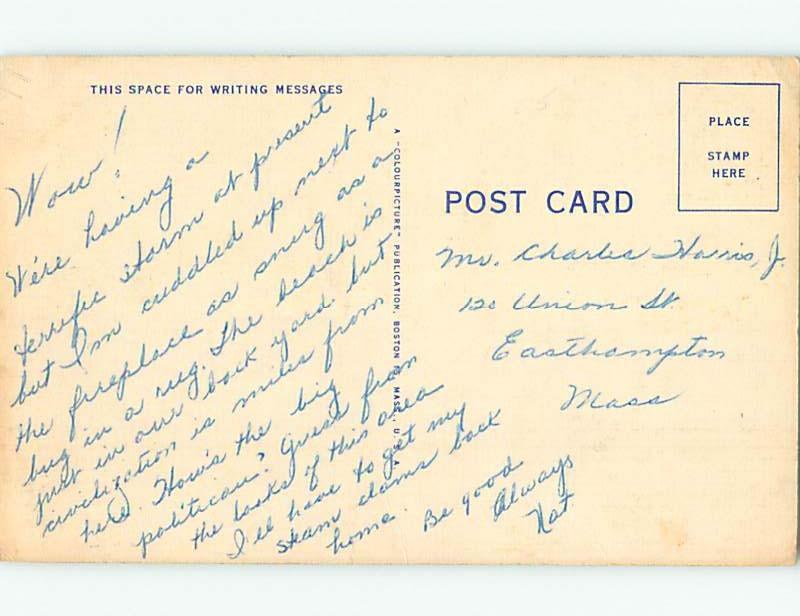 THIS SPACE FOR WRITING MESSAGES
Wow!
We're having a
terrific storm at present
but I'm cuddled up next to
the fireplace as snug as a
bug in a rug. The beach is
just in our back yard. but
civilization is miles from
here. How's the big
politician? Guess from
the looks of this area
I'll have to get my
steam clams back
home. Be good
Always
Nat
A "COLOURPICTURE" PUBLICATION, BOSTON 15, MASS., U.S.A.
PLACE
STAMP
HERE
POST CARD
Mr. Charles Harris, Jr.
120 Union St.
Easthampton
Mass